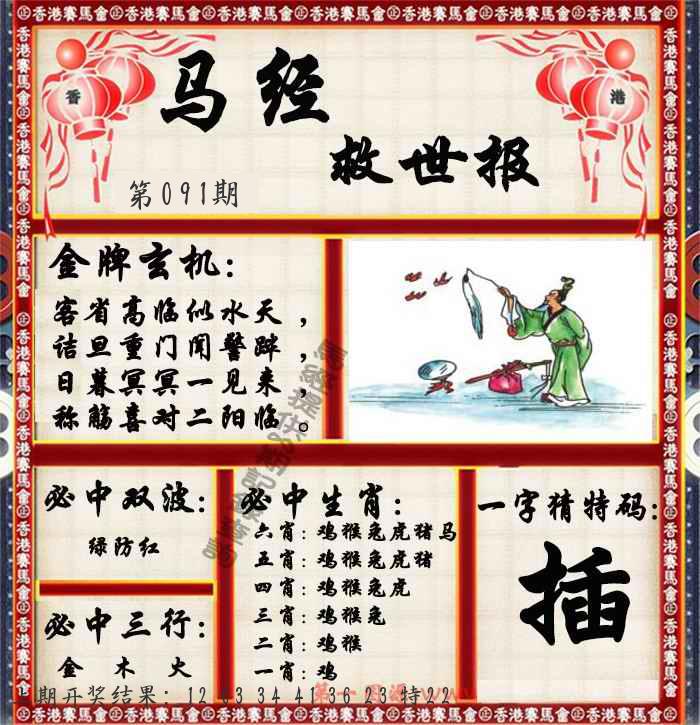 香港賽馬會
香
港
马经
救世报
第091期
金牌玄机：
客省高临似水天，
诘旦重门闻警跸，
日暮冥冥一见来，
称觞喜对二阳临。
必中双波：
绿防红
必中三行：
金 木 火
必中生肖：
六肖：鸡猴兔虎猪马
五肖：鸡猴兔虎猪
四肖：鸡猴兔虎
三肖：鸡猴兔
二肖：鸡猴
一肖：鸡
一字猜特码：
插
期开奖结果：12 03 34 41 36 23 特22